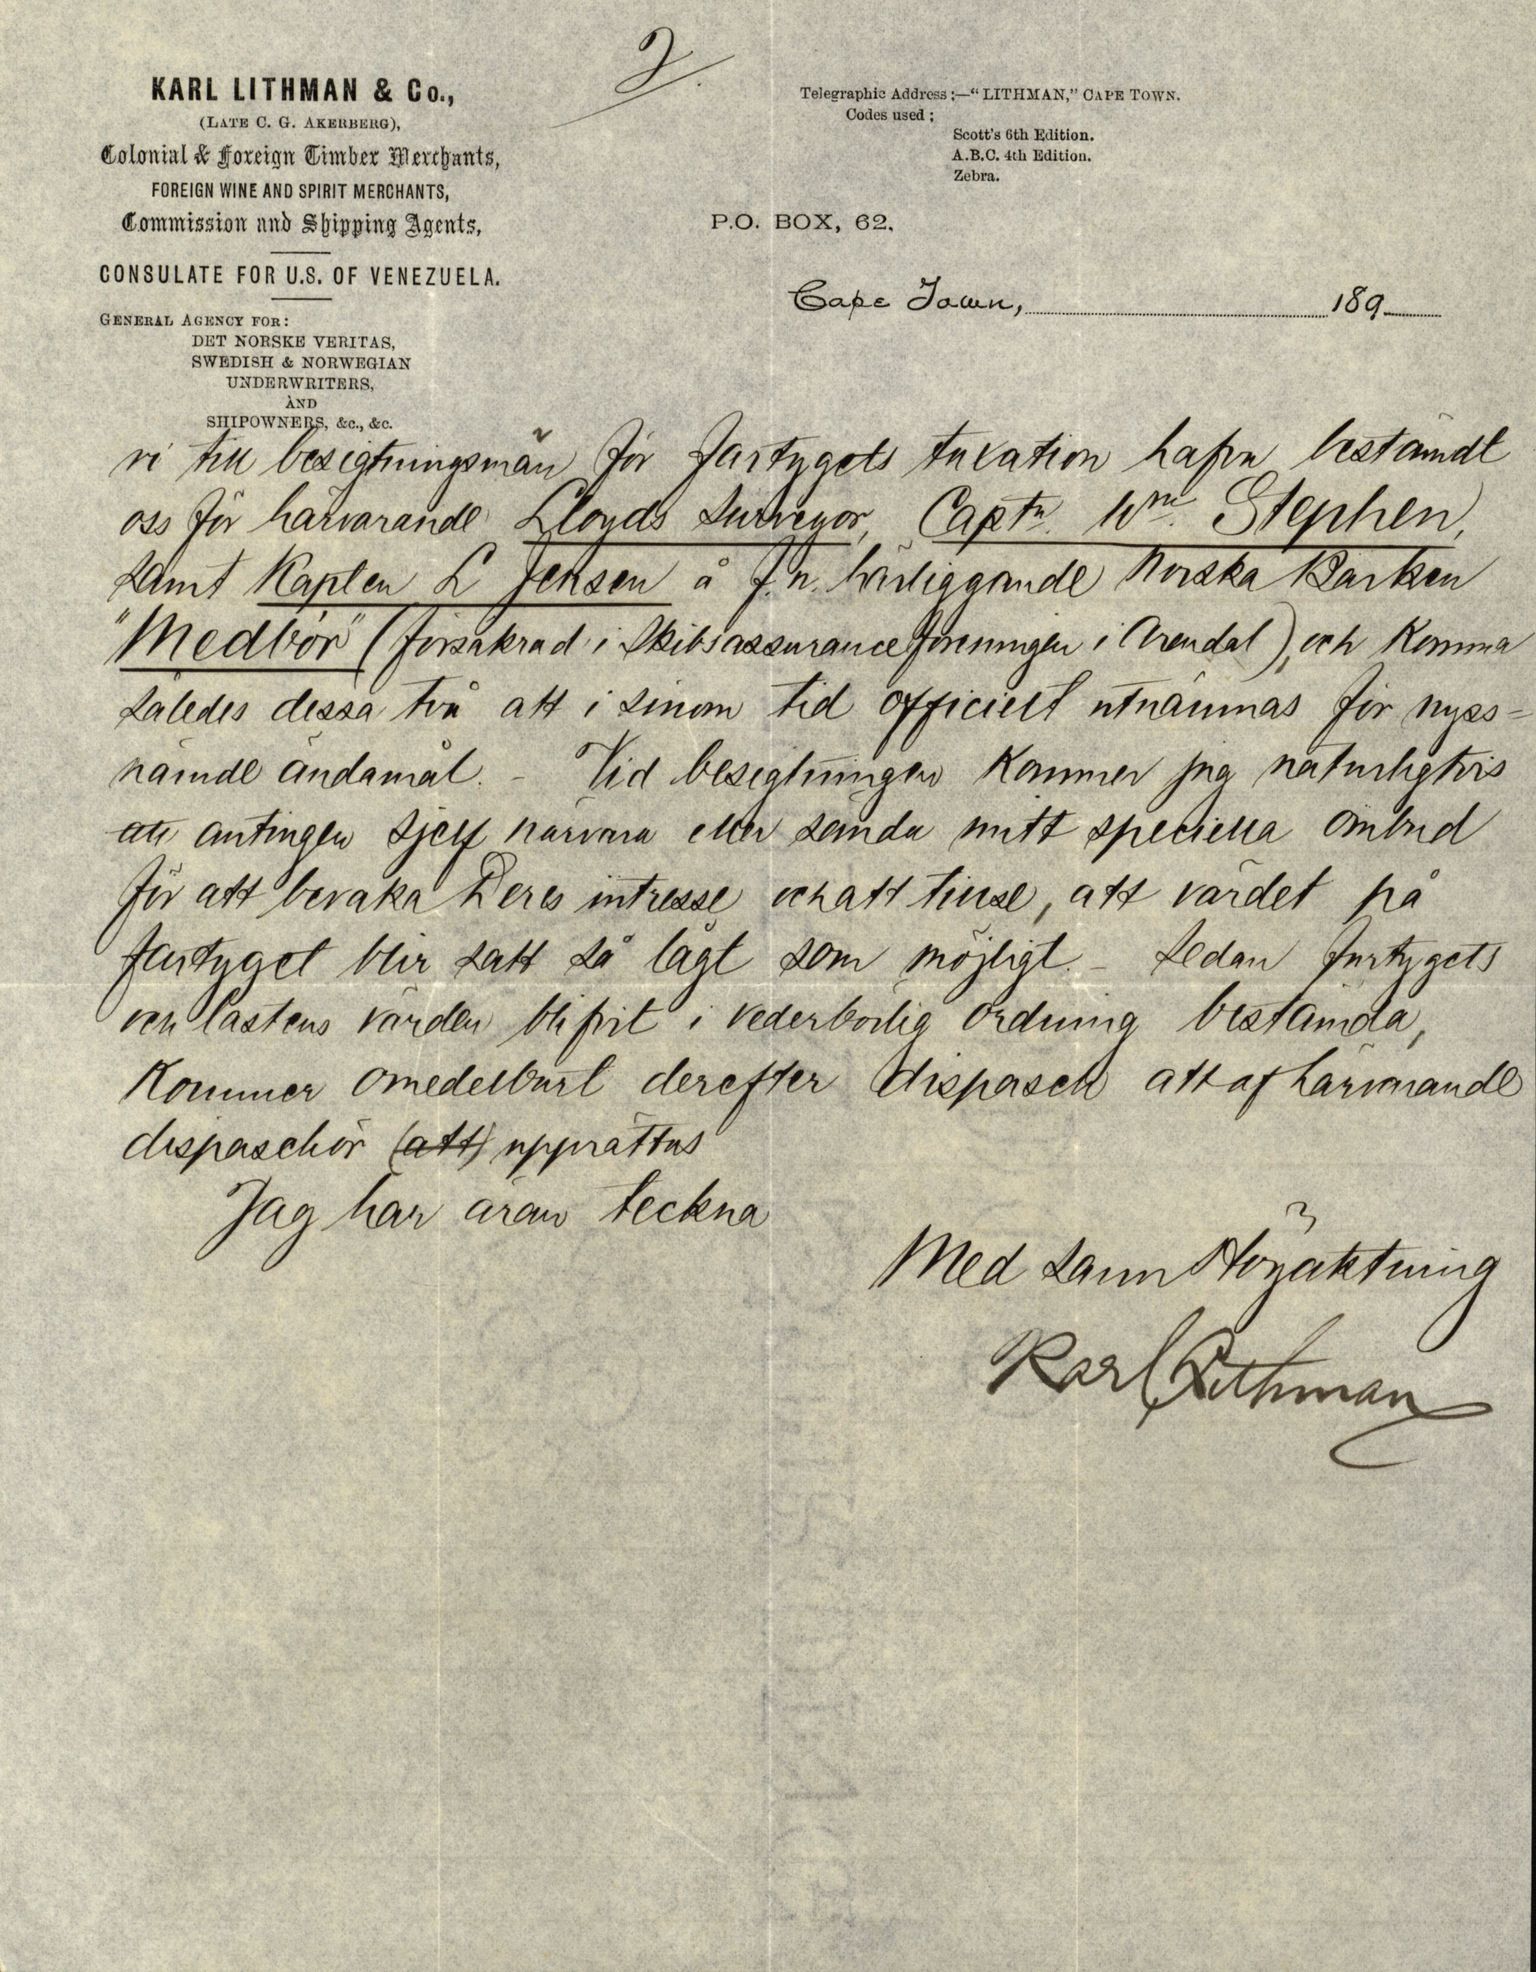 2.
KARL LITHMAN & Co.,
(LATE C. G. AKERBERG),
Colonial & Foreign Timber Merchants,
FOREIGN WINE AND SPIRIT MERCHANTS,
Commission and Shipping Agents,
CONSULATE FOR U.S. OF VENEZUELA.
GENERAL AGENCY FOR:
DET NORSKE VERITAS,
SWEDISH & NORWEGIAN
UNDERWRITERS,
AND
SHIPOWNERS, &c., &c.
Telegraphic Address:—"LITHMAN," CAPE TOWN.
Codes used:
Scott's 6th Edition.
A.B.C. 4th Edition.
Zebra.
P.O. BOX, 62.
Cape Town, 189
vi till besigtningsmän för fartygets taxation hafva bestämdt
oss för härvarande Lloyds Surveyor, Captn. Wm. Stephen,
samt Kapten L Jensen å f.n. härliggande Norska Barken
"Medbör" (försäkrad i Skibsassuranceforeningen i Arendal), och komma
således dessa två att i sinom tid officielt utnämnas för nyss=
nämde ändamål. - Vid besigtningen kommer jag naturligtvis
att antingen sjelf närvara eller sända mitt speciella ombud
för att bevaka Deres intresse och att tillse, att värdet på
fartyget blir satt så lågt som möjligt. - Sedan fartygets
och lastens värden blifvit i vederbörlig ordning bestämda,
kommer omedelbart derefter dispasch att af härvarande
dispaschör (att) upprättas
Jag har äran teckna
Med sann Högaktning
Karl Lithman